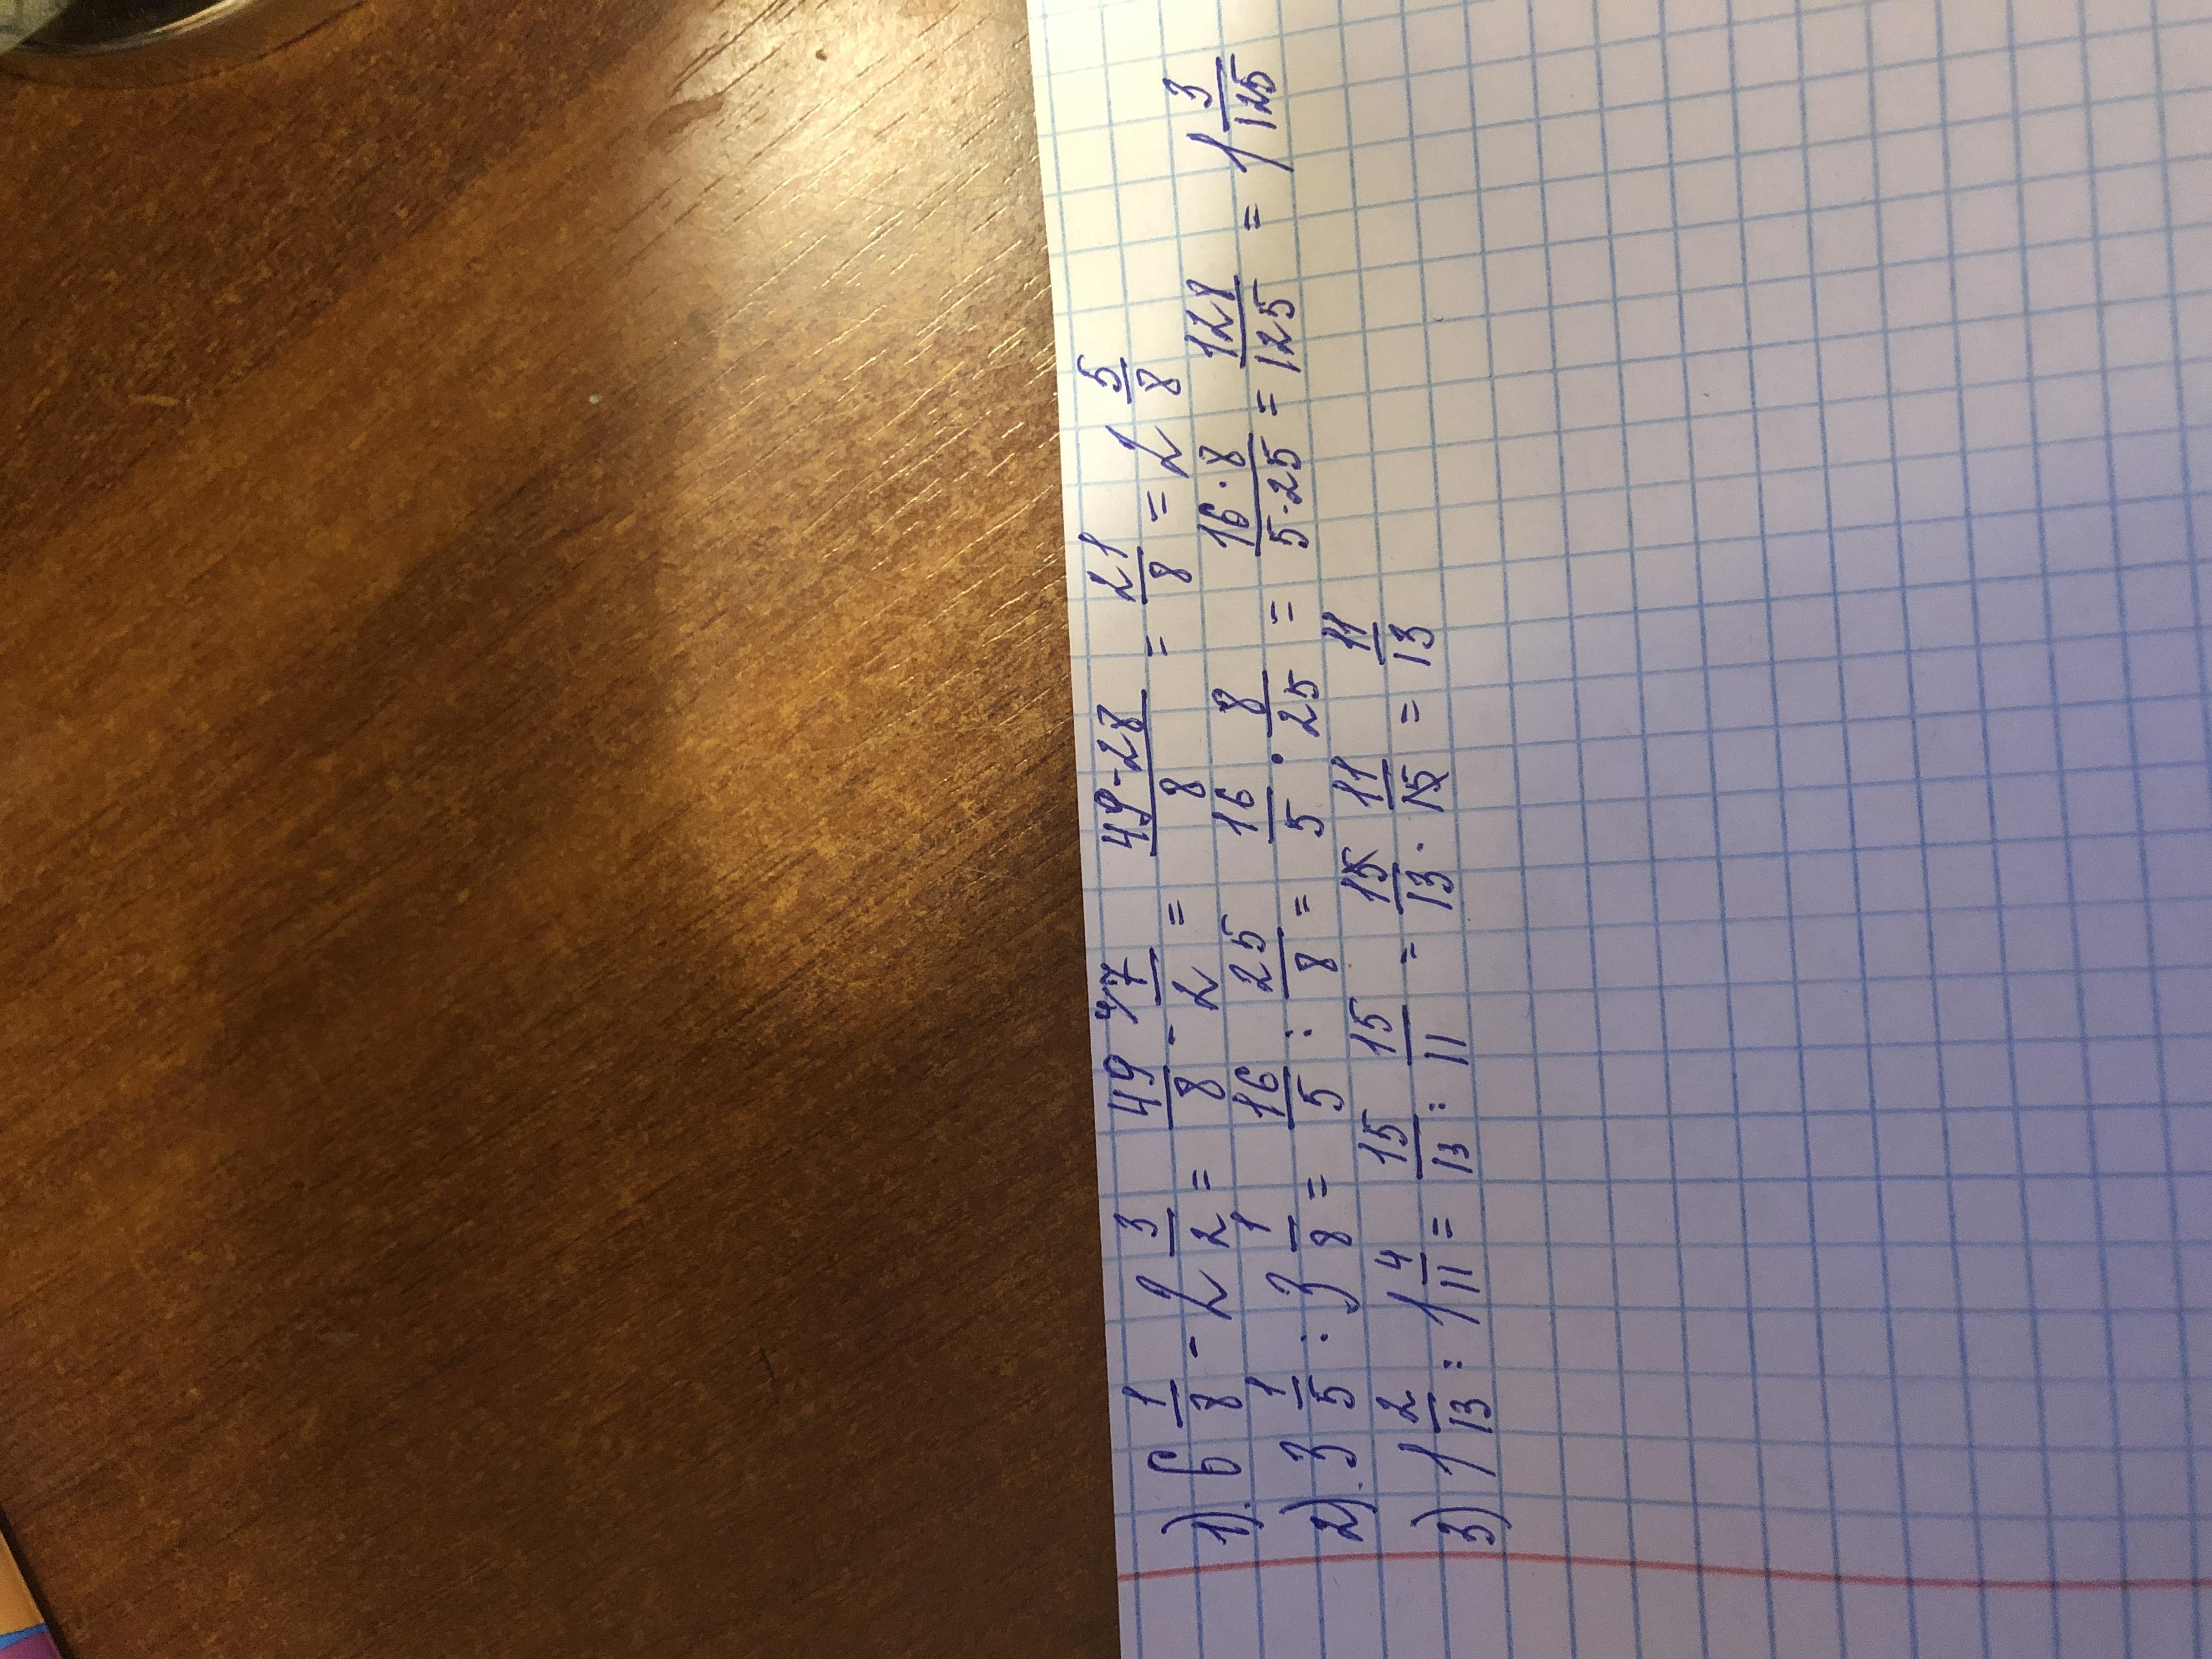 1). 6 1/8 - 2 3/2 = 49/8 - ⁴⁾7/2 = 49-28/8 = 21/8 = 2 5/8
2). 3 1/5 : 3 1/8 = 16/5 : 25/8 = 16/5 · 8/25 = 16·8/5·25 = 128/125 = 1 3/125
3) 1 2/13 : 1 4/11 = 15/13 : 15/11 = 15/13 · 11/15 = 11/13